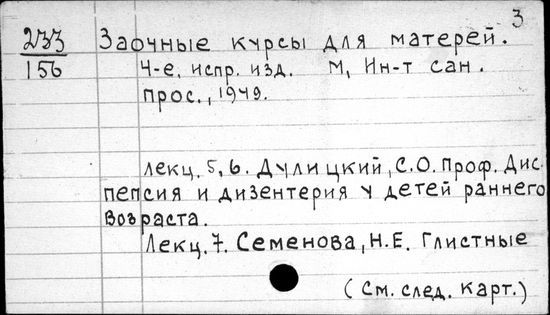 З
233 Заочные курсы для матерей.
156 4-е, испр. изд. М, Ин-т сан.
прос., 1949.
лекц. 5, 6. Дулицкий, С.О. Проф. Дис-
пепсия и дизентерия у детей раннего
возраста.
Лекц. 7. Семенова, Н.Е. Глистные
(См. след. карт.)